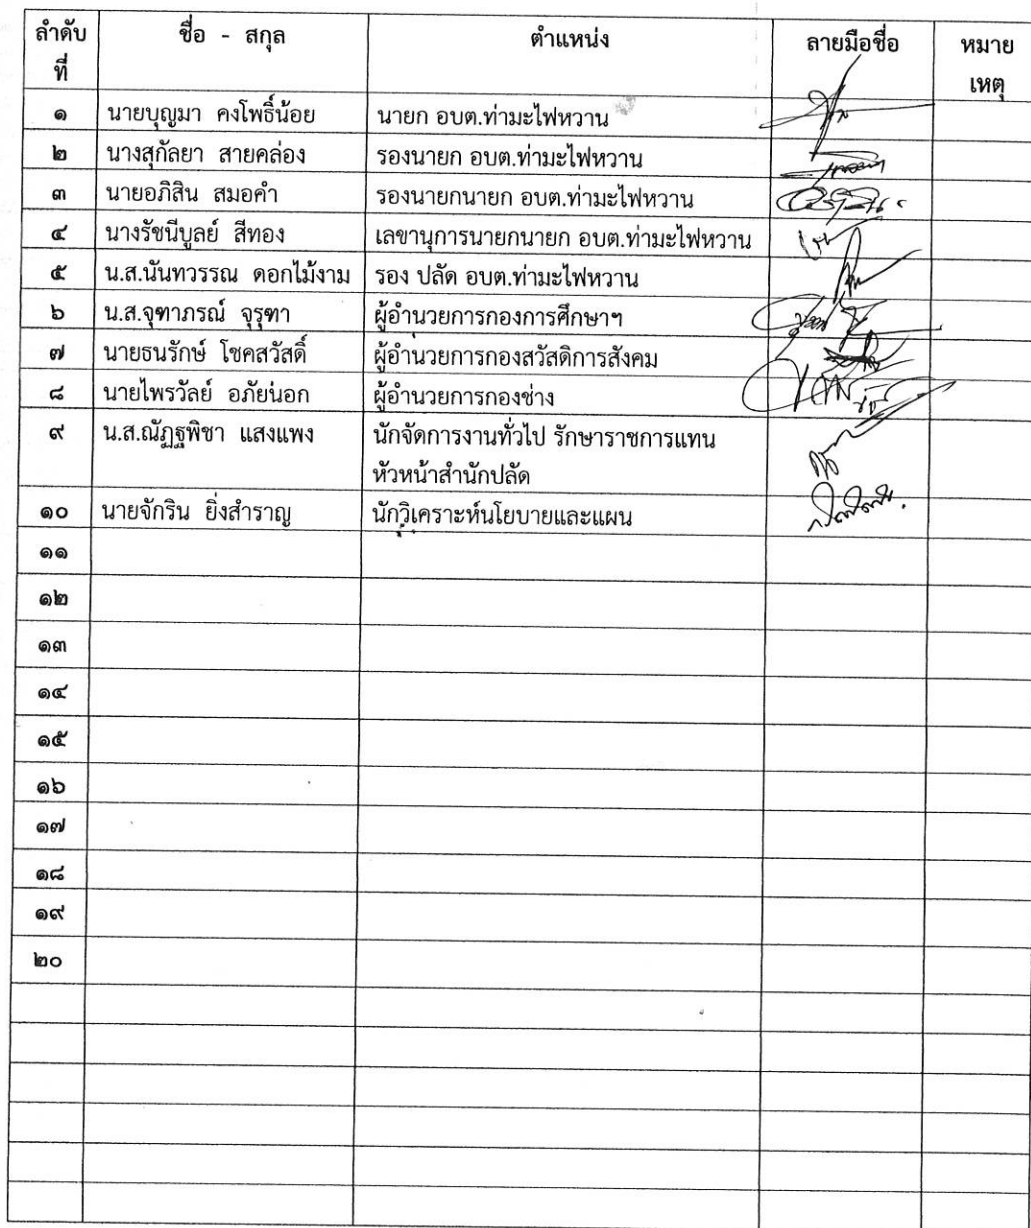 ลำดับที่ ชื่อ - สกุล ตำแหน่ง ลายมือชื่อ หมายเหตุ
๑ นายบุญมา คงโพธิ์น้อย นายก อบต.ท่ามะไฟหวาน
๒ นางสุกัลยา สายคล่อง รองนายก อบต.ท่ามะไฟหวาน
๓ นายอภิสิน สมอคำ รองนายกนายก อบต.ท่ามะไฟหวาน
๔ นางรัชนีบูลย์ สีทอง เลขานุการนายกนายก อบต.ท่ามะไฟหวาน
๕ น.ส.นันทวรรณ ดอกไม้งาม รอง ปลัด อบต.ท่ามะไฟหวาน
๖ น.ส.จุฑาภรณ์ จุรุฑา ผู้อำนวยการกองการศึกษาฯ
๗ นายธนรักษ์ โชคสวัสดิ์ ผู้อำนวยการกองสวัสดิการสังคม
๘ นายไพรวัลย์ อภัยน่อก ผู้อำนวยการกองช่าง
๙ น.ส.ณัฏฐพิชา แสงแพง นักจัดการงานทั่วไป รักษาราชการแทน
หัวหน้าสำนักปลัด
๑๐ นายจักริน ยิ่งสำราญ นักวิเคราะห์นโยบายและแผน
๑๑
๑๒
๑๓
๑๔
๑๕
๑๖
๑๗
๑๘
๑๙
๒๐